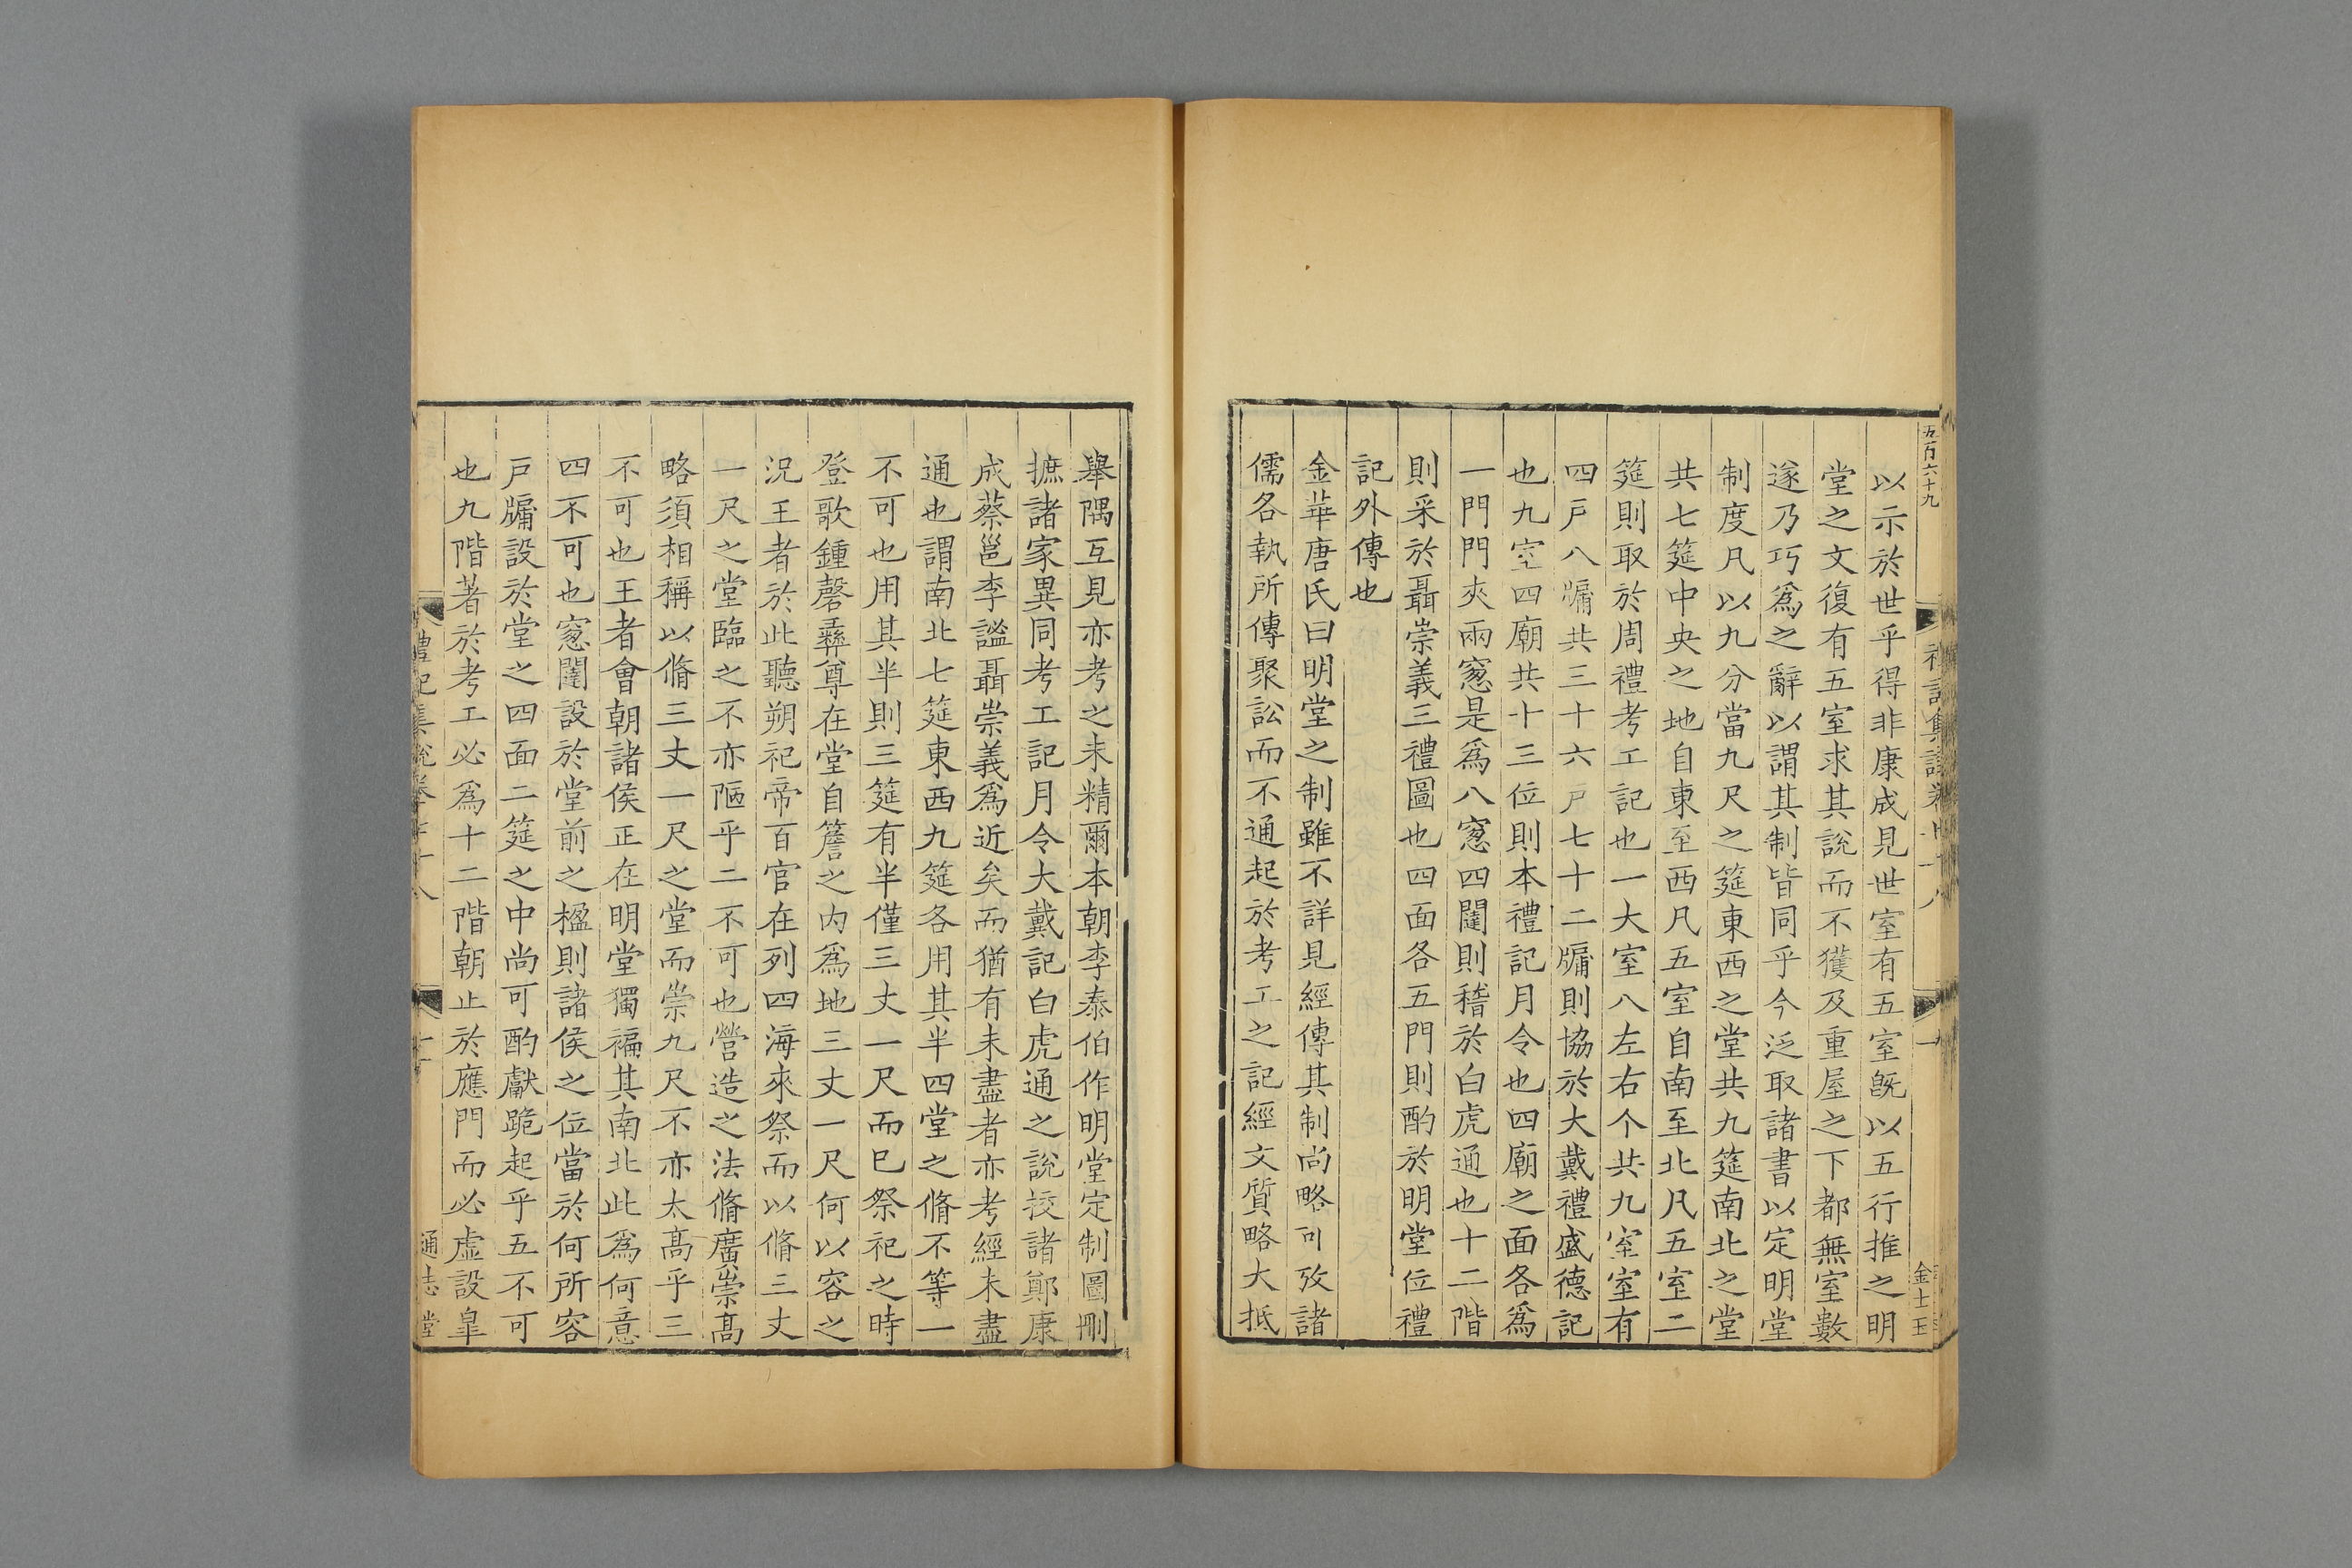 五百六十九
金士玉
以示於世乎得非康成見世室有五室旣以五行推之明
堂之文復有五室求其說而不獲及重屋之下都無室數
遂乃巧爲之辭以謂其制皆同乎今泛取諸書以定明堂
制度凡以九分當九尺之筵東西之堂共九筵南北之堂
共七筵中央之地自東至西凡五室自南至北凡五室二
筵則取於周禮考工記也一大室八左右个共九室室有
四戶八牖共三十六戶七十二牖則協於大戴禮盛德記
也九室四廟共十三位則本禮記月令也四廟之面各爲
一門門夾兩窻是爲八窻四闥則稽於白虎通也十二階
則采於聶崇義三禮圖也四面各五門則酌於明堂位禮
記外傳也
金華唐氏曰明堂之制雖不詳見經傳其制尚略可攷諸
儒各執所傳聚訟而不通起於考工之記經文質略大抵
舉隅互見亦考之未精爾本朝李泰伯作明堂定制圖刪
摭諸家異同考工記月令大戴記白虎通之說挍諸鄭康
成蔡邕李謐聶崇義爲近矣而猶有未盡者亦考經未盡
通也謂南北七筵東西九筵各用其半四堂之脩不等一
不可也用其半則三筵有半僅三丈一尺而巳祭祀之時
登歌鍾磬彞尊在堂自簷之内爲地三丈一尺何以容之
況王者於此聽朔祀帝百官在列四海來祭而以脩三丈
一尺之堂臨之不亦陋乎二不可也營造之法脩廣崇髙
略須相稱以脩三丈一尺之堂而崇九尺不亦太髙乎三
不可也王者會朝諸侯正在明堂獨褊其南北此爲何意
四不可也窻闥設於堂前之楹則諸侯之位當於何所容
戶牖設於堂之四面二筵之中尚可酌獻跪起乎五不可
也九階著於考工必爲十二階朝止於應門而必虛設皐
禮記集說卷
通志堂